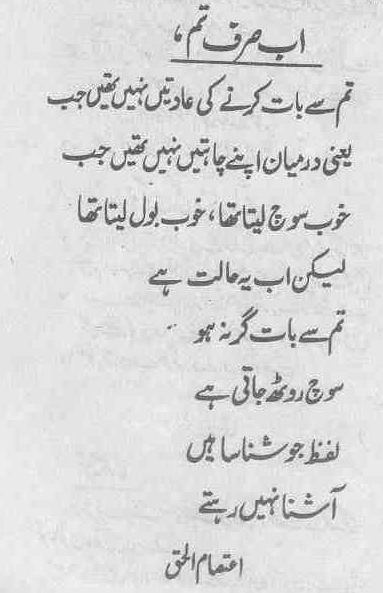 اب صرف تم،
تم سے بات کرنے کی عادتیں نہیں تھیں جب
یعنی درمیان اپنے چاہتیں نہیں تھیں جب
خوب سوچ لیتا تھا، خوب بول لیتا تھا
لیکن اب یہ حالت ہے
تم سے بات گر نہ ہو
سوچ روٹھ جاتی ہے
لفظ جو شناسا ہیں
آشنا نہیں رہتے
اعتصام الحق